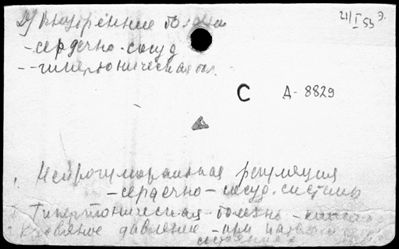 2) Внутренние болезни
21/I 53 э.
-сердечно-сосуд
--гипертоническая бол.
С Д-8829
1. Нейрогуморальная регуляция
-сердечно-сосуд. системы
Гипертоническая болезнь -
Кровяное давление - при